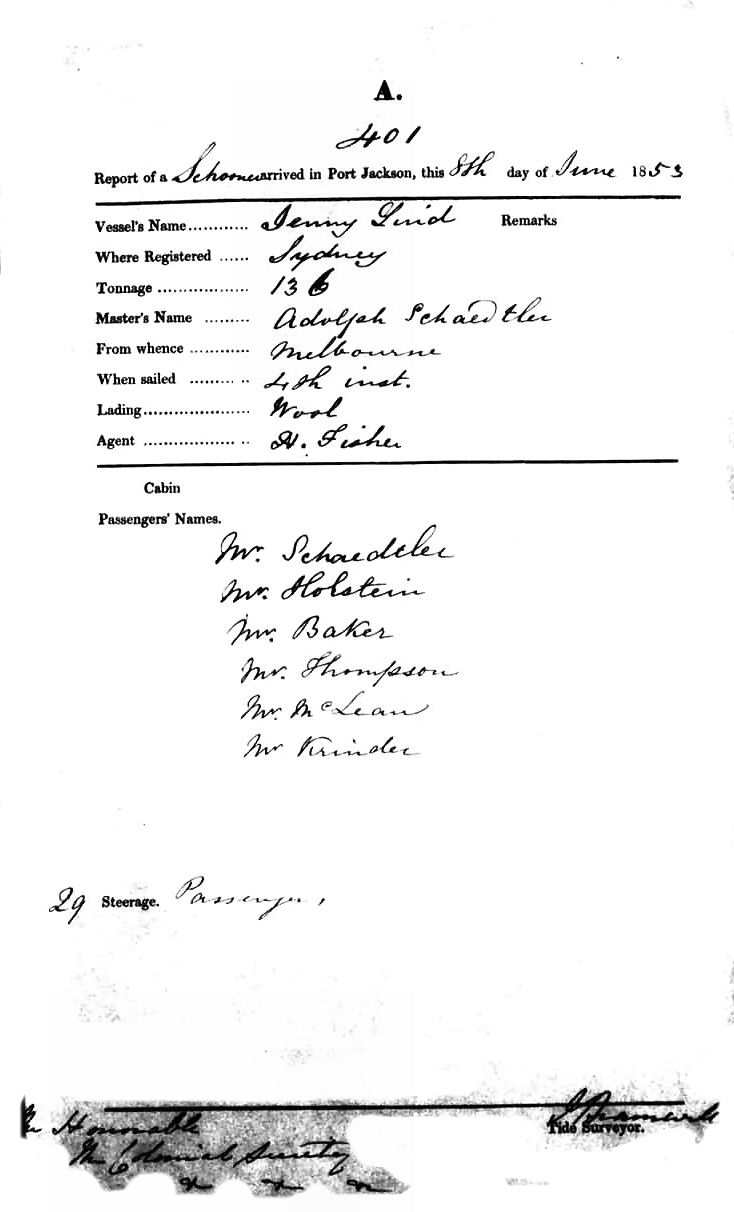 A.
401
Report of a Schooner arrived in Port Jackson, this 8th day of June 1853
Vessel's Name............ Jenny Lind Remarks
Where Registered ...... Sydney
Tonnage .................. 136
Master's Name ......... Adolph Schaedtler
From whence ............ Melbourne
When sailed ......... .. 4th inst.
Lading..................... Wool
Agent .................. .. H. Fisher
Cabin
Passengers' Names.
Mr. Schaedtler
Mr. Holstein
Mr. Baker
Mr. Thompson
Mr. McLean
Mr Krinder
29 Steerage. Passengers,
Tide Surveyor.
The Honorable
The Colonial Secretary